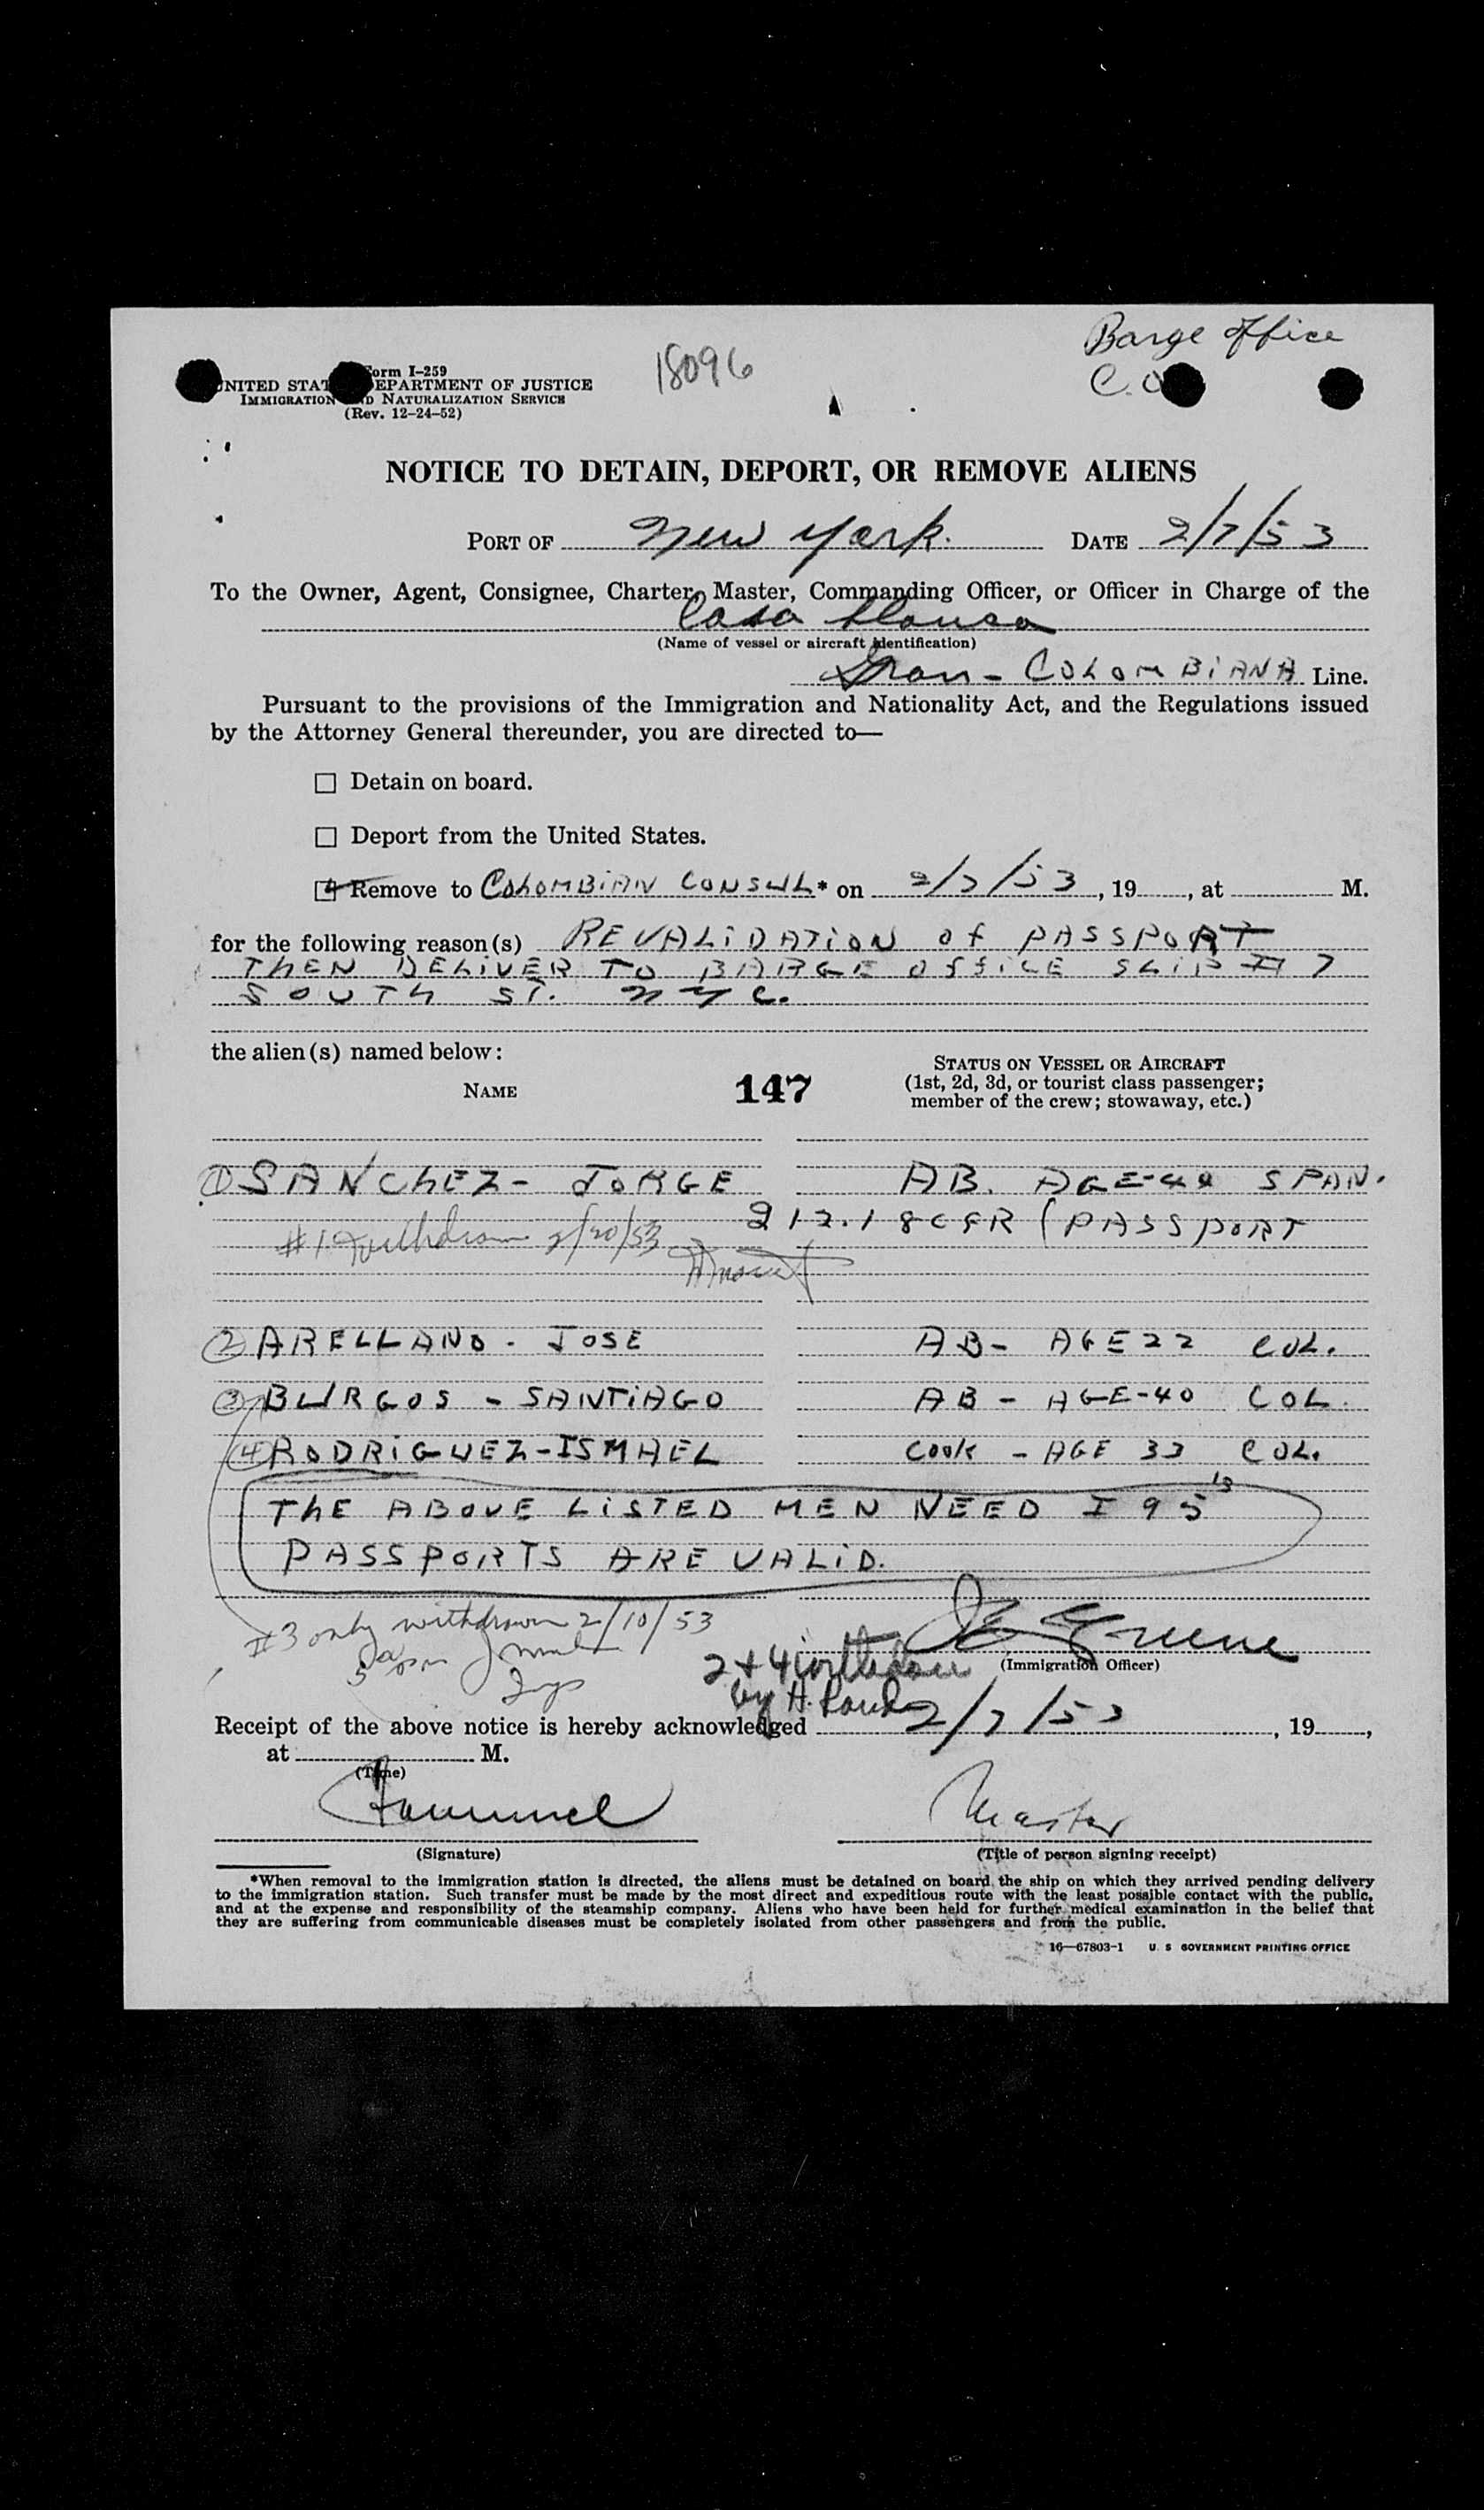 Barge office
18096
Form I-259
UNITED STATES DEPARTMENT OF JUSTICE
IMMIGRATION AND NATURALIZATION SERVICE
(Rev. 12-24-52)
NOTICE TO DETAIN, DEPORT, OR REMOVE ALIENS
PORT OF New York. DATE 2/7/53
To the Owner, Agent, Consignee, Charter, Master, Commanding Officer, or Officer in Charge of the
Casa
(Name of vessel or aircraft identification)
Gran - COLOMBIANA Line.
Pursuant to the provisions of the Immigration and Nationality Act, and the Regulations issued
by the Attorney General thereunder, you are directed to—
☐ Detain on board.
☐ Deport from the United States.
Remove to COLOMBIAN CONSUL* on 2/7/53, 19......, at ............ M.
for the following reason(s) REVALIDATION of PASSPORT
THEN DELIVER TO BARGE OFFICE SLIP # 7
SOUTH ST. NYC.
the alien(s) named below:
NAME
147
STATUS ON VESSEL OR AIRCRAFT
(1st, 2d, 3d, or tourist class passenger;
member of the crew; stowaway, etc.)
① SANCHEZ - JORGE AB. AGE-40 SPAN.
212.1 8CFR (PASSPORT
#1 withdrawn 2/20/53
② ARELLANO - JOSE AB - AGE 22 COL.
③ BURGOS - SANTIAGO AB - AGE-40 COL.
④ RODRIGUEZ - ISMAEL COOK - AGE 33 COL.
THE ABOVE LISTED MEN NEED I 95's
PASSPORTS ARE VALID.
#3 only withdrawn 2/10/53
Greene
(Immigration Officer)
2 + 4 withdrawn
by H.
Receipt of the above notice is hereby acknowledged 2/7/53, 19......,
at ............ M.
(Time)
Master
(Signature)
(Title of person signing receipt)
*When removal to the immigration station is directed, the aliens must be detained on board the ship on which they arrived pending delivery
to the immigration station. Such transfer must be made by the most direct and expeditious route with the least possible contact with the public,
and at the expense and responsibility of the steamship company. Aliens who have been held for further medical examination in the belief that
they are suffering from communicable diseases must be completely isolated from other passengers and from the public.
16—67803-1 U. S. GOVERNMENT PRINTING OFFICE